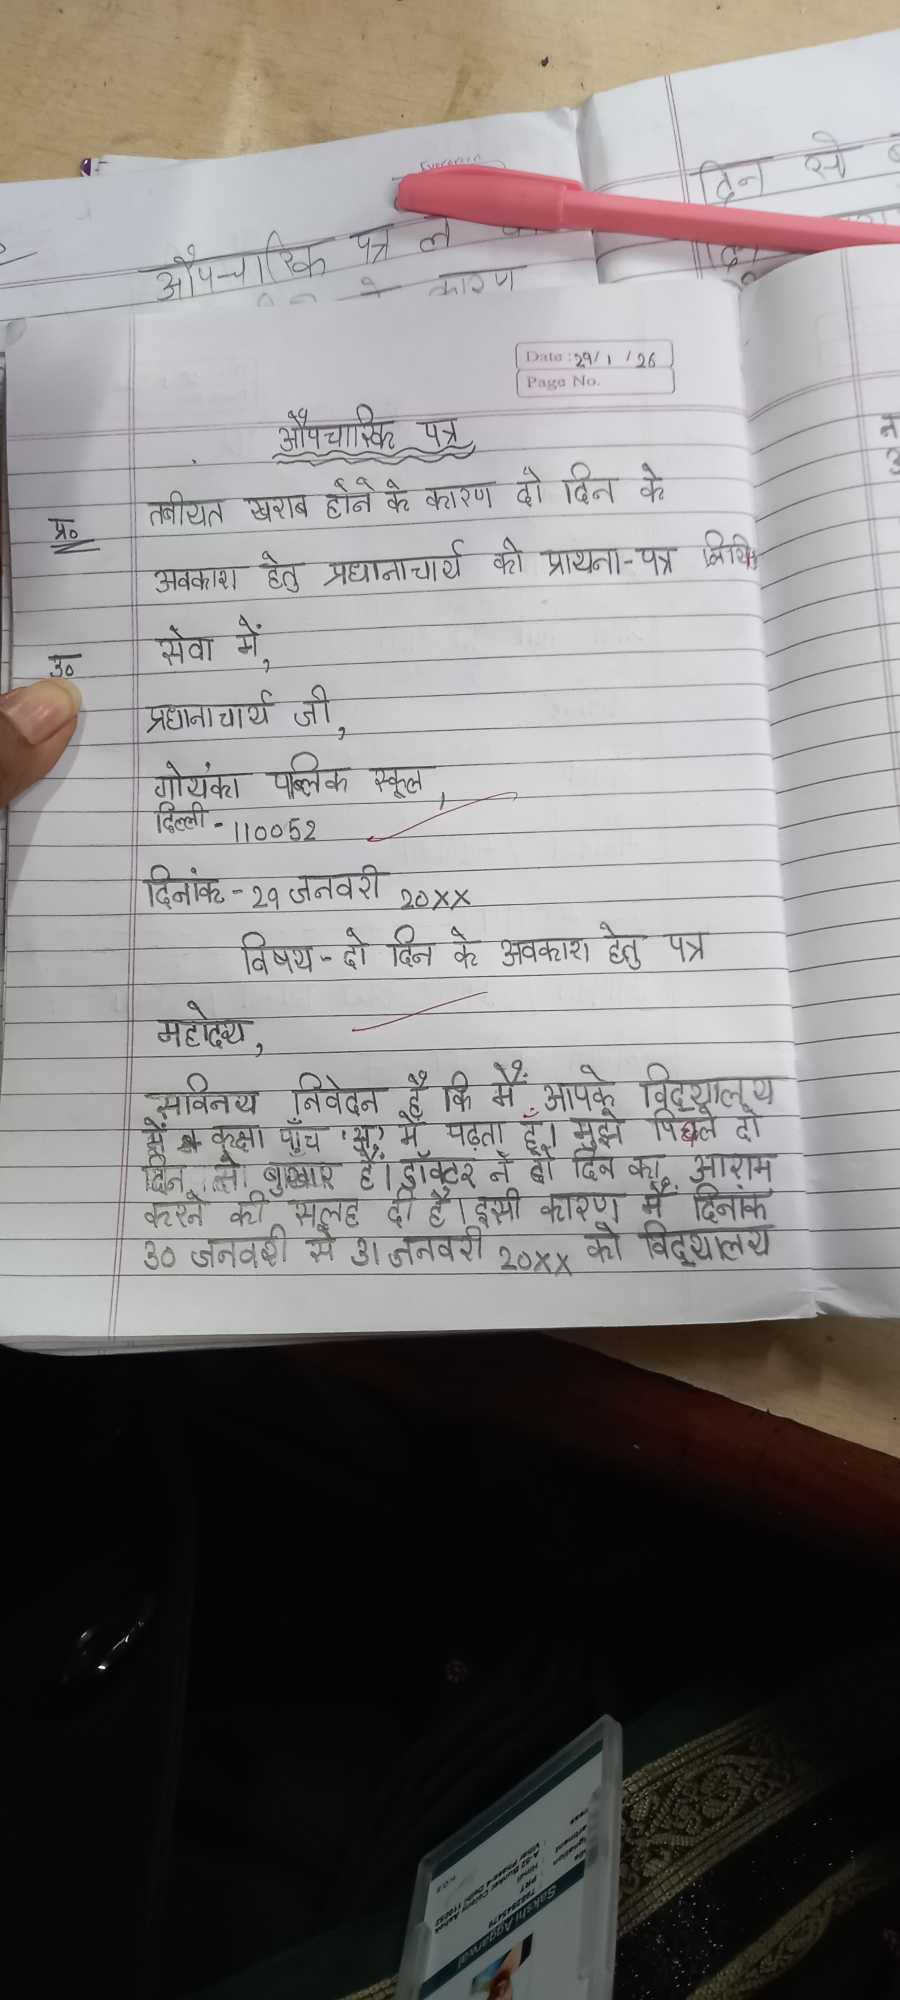 औपचारिक पत्र
कारण
दिन से
Date : 29/1/26
Page No.
औपचारिक पत्र
प्र० तबीयत खराब होने के कारण दो दिन के
अवकाश हेतु प्रधानाचार्य को प्रायना-पत्र लिखिए
उ० सेवा में,
प्रधानाचार्य जी,
गोयंका पब्लिक स्कूल,
दिल्ली - 110052
दिनांक - 29 जनवरी 20xx
विषय - दो दिन के अवकाश हेतु पत्र
महोदय,
सविनय निवेदन है कि मैं आपके विद्यालय
में कक्षा पाँच 'स' में पढ़ता हूँ। मुझे पिछले दो
दिन से बुखार है। डॉक्टर ने दो दिन का आराम
करने की सलह दी है। इसी कारण मैं दिनांक
30 जनवरी से 31 जनवरी 20xx को विद्यालय
Sakshi Aggarwal
PRT
Hindi